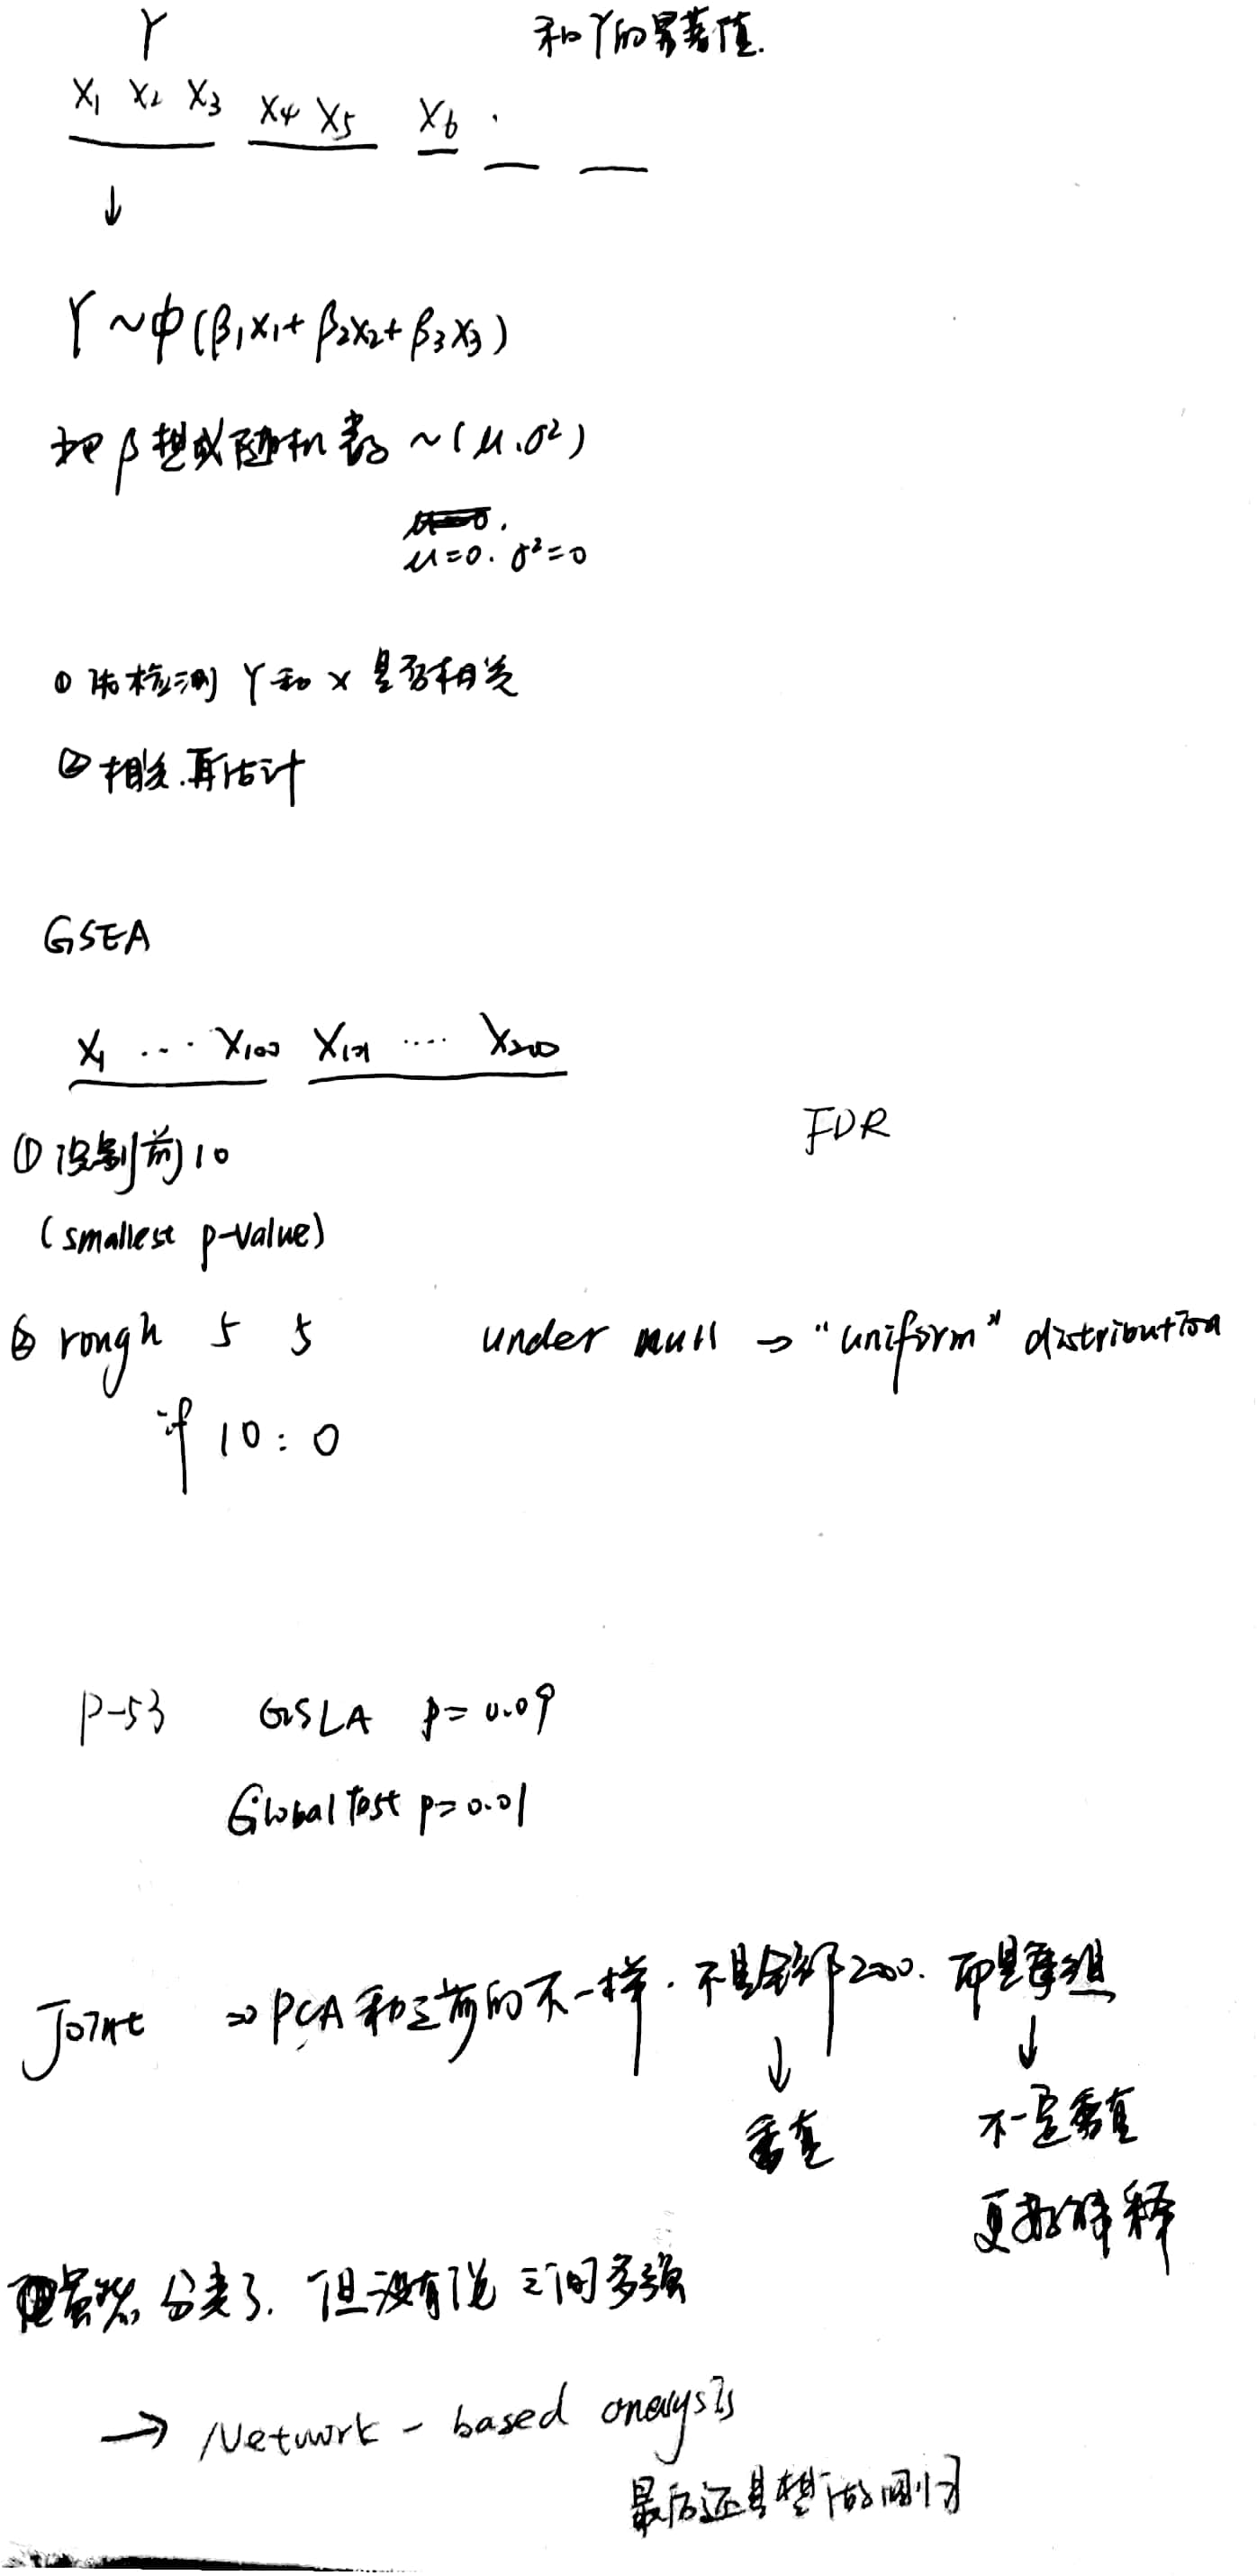 Y 和Y的显著值.
X₁ X₂ X₃ X₄ X₅ X₆ .
↓
Y ~ ϕ(β₁X₁+ β₂X₂+ β₃X₃)
把β想成随机数 ~(μ.σ²)
μ=0. σ²=0
① 先检测 Y和X 是否相关
② 相关.再估计
GSEA
X₁ ... X₁₀₀ X₁₀₁ .... X₂₀₀
FDR
① 找到前10
(smallest p-value)
② rough 5 5 under null → "uniform" distribution
if 10:0
P-53 GSEA p=0.09
Global Test p=0.01
Joint ⇒ PCA和之前的不一样.不是全部200. 而是每组
↓ ↓
垂直 不一定垂直
更好解释
虽然分类了. 但没有说之间多强
→ Network-based analysis
最后还是想做回归